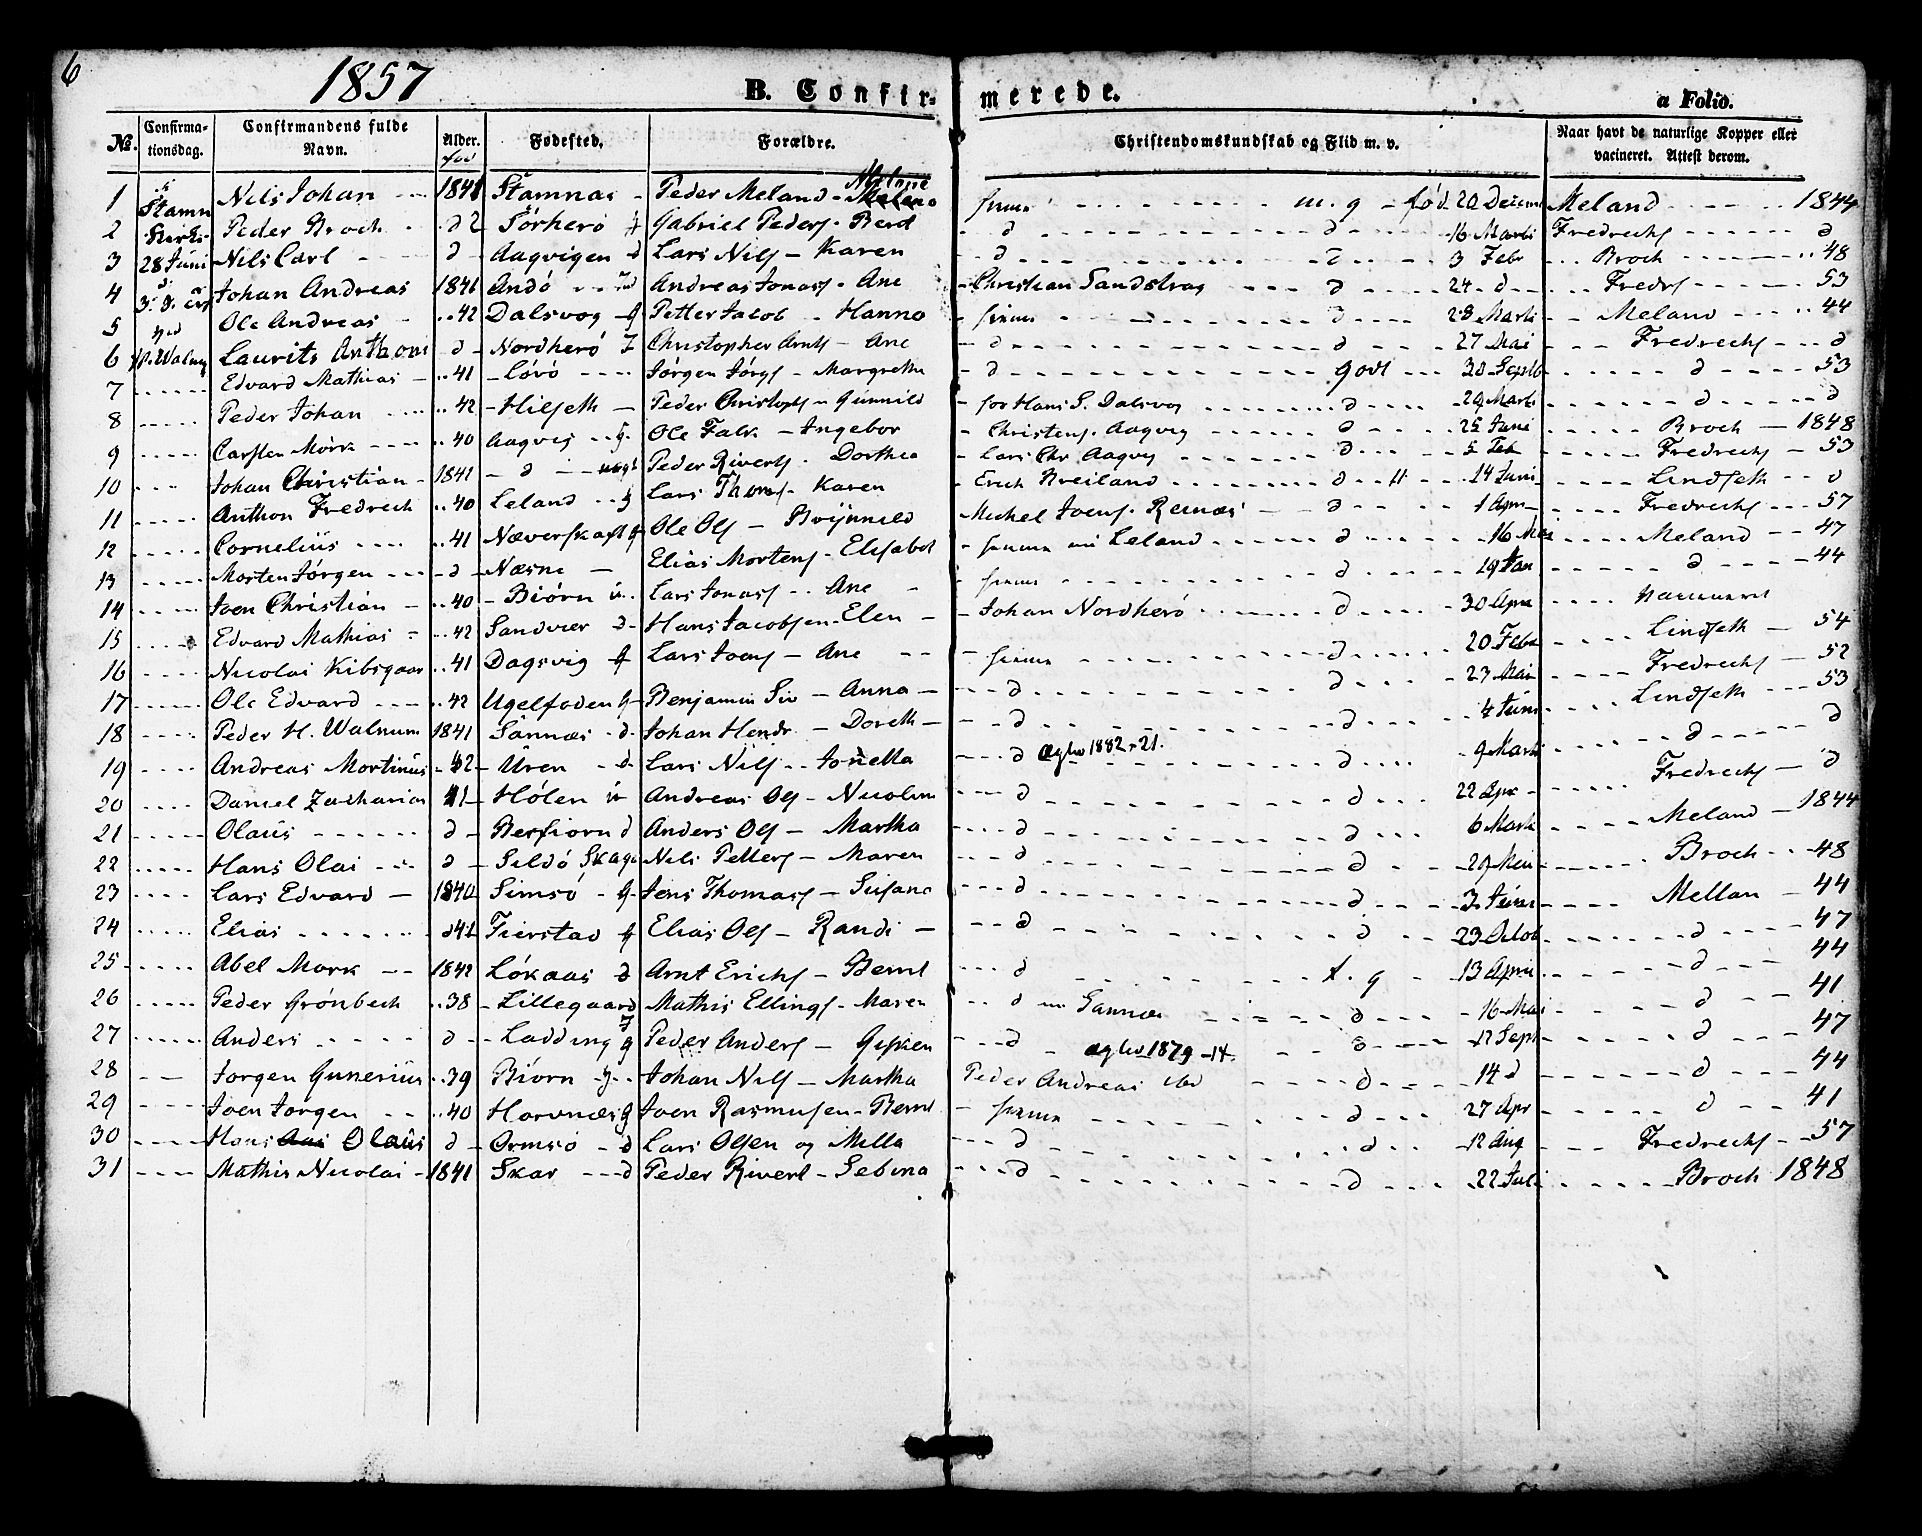 6
1857
B. Confir-
merede.
a Folio.
No. Confirma-tionsdag. Confirmandens fulde Navn. Alder. Fødested. Forældre. Christendomskundskab og Flid m. v. Naar havt de naturlige Kopper eller vacineret. Attest derom.
1 Stamn Nils Johan 1841 Stamnas Peder Meland - m. g - fød 20 Decem Meland 1844
2 Peder Broch d 2 Sörherö Gabriel Peders - Berd d d 16 Marti Fredrechs d
3 28 Juni Nils Carl d Aagvigen d Lars Nils - Karen d 3 Febr Broch 48
4 Johan Andreas 1841 Andö Andreas Jonas - Ane Christian Sandstrag d 24 d Fredrs 53
5 Ole Andreas 42 Dalsvog Petter Jacob - Hanna d 28 Marti Meland 44
6 Laurits Anthon d Nordherö Christopher Arnts - Ane d d 27 Mai Fredrechs d
7 Edvard Mathias 41 Lövö Jörgen Jörgs - Margrethe d godt 30 Septb d 53
8 Peder Johan 42 Hilseth Peder Christophs - Gunnild for Hans S. Dalsvog d 29 Marti d d
9 Carsten Mörk 40 Aagvig Ole Falk - Ingebor Christens. Aagvig d 25 Juni Broch 1848
10 Johan Christian 1841 d Peder Riverts. Dorthea Lars Chr Aagvig d 5 Feb Fredrechs 53
11 Anthon Fredrech 40 Leland Lars Thoms - Karen Erich Breiland d 14 Juni Lindseth d
12 Cornelius 41 Næverskaft Ole Ols - Brynnild Michel Joens. Remæs d 1 Apr Fredrechs 57
13 Morten Jörgen d Næsne Elias Mortens - Elisabet Leland d 16 Mai Meland 47
14 Joen Christian 40 Biörn Lars Jonas - Ane d 19 Jan d 44
15 Edvard Mathias 42 Sandvær d Hans Jacobsen - Elen Johan Nordherö d 30 Apr
16 Nicolai Kibsgaar 41 Dagsvig Lars Joens - Ane d 20 Febr Lindseth 54
17 Ole Edvard 42 Ugelfoden Benjamin Siv - Anna d d 23 Mai Fredrechs 52
18 Peder H. Walnum 1841 Sannæs d Johan Hendr - Doreth d d 4 Juni Lindseth 53
19 Andreas Mortinus 42 Uren d Lars Nils - Jonetta d 1882 - 21. d 9 Marti d d
20 Daniel Zacharias 41 Hölen Andreas Ols - Nicolin d d 22 Apr Fredrechs d
21 Olaus d Berfiorn d Anders Ols - Martha d d 6 Marti Meland 1844
22 Hans Olai d Sildö Skage Nils Petters - Maren d d 29 Mai Broch 48
23 Lars Edvard 1840 Simsö Jens Thomas - Susana d d 3 Juni Mellan 44
24 Elias 41 Tierstad Elias Ols - Randi d d 23 Octob d 47
25 Abel Mork 1842 Lökaas d Arnt Erichs - Bernt d t. g 13 April d 44
26 Peder Grönbech 38 Lillegaard Mathis Ellings - Maren d Sannæs d 16 Mai d 41
27 Anders d Ladding Peder Anders - Gisken d 1879 - 14. d 17 Sept d 47
28 Jorgen Gunerius 39 Biörn Johan Nils - Martha Peder Andreas d 14 d d 44
29 Joen Jorgen 40 Horvnæs Joen Rasmusen - Bernt d 27 Apr d 41
30 Hans Olaus d Ormsö d Lars Olsen og Mella d d 12 Aug Fredrechs 57
31 Mathis Nicolai 1841 Skar d Peder Rivert - Sebina d d 22 Juli Broch 1848